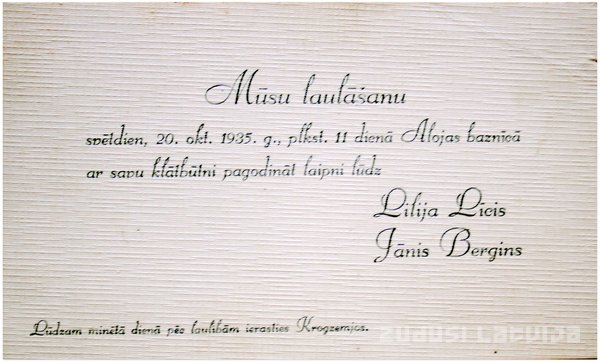 Mūsu laulāšanu
svētdien, 20. okt. 1935. g., plkst. 11 dienā Alojas baznīcā
ar savu klātbūtni pagodināt laipni lūdz
Lilija Līcis
Jānis Bergins
Lūdzam minētā dienā pēc laulībām ierasties Krogzemjos.
ZUDUSI LATVIJA